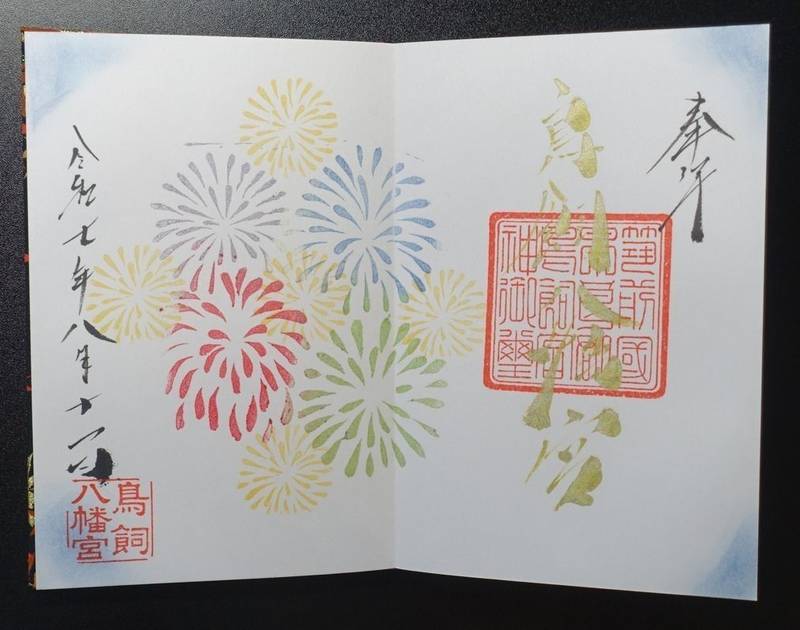 奉拝
鳥飼八幡宮
筑前國
鳥飼宮
神御璽
令和七年八月十一日
鳥飼
八幡宮